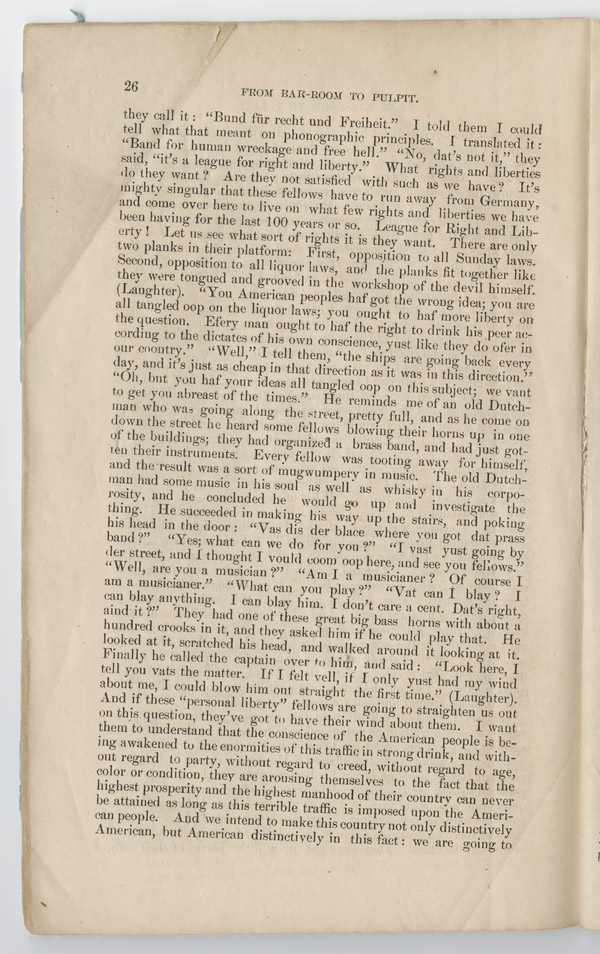 26
FROM BAR-ROOM TO PULPIT.
they call it: "Bund für recht und Freiheit." I told them I could
tell what that meant on phonographic principles. I translated it:
"Band for human wreckage and free hell." "No, dat's not it," they
said, "it's a league for right and liberty." What rights and liberties
do they want? Are they not satisfied with such as we have? It's
mighty singular that these fellows have to run away from Germany,
and come over here to live on what few rights and liberties we have
been having for the last 100 years or so. League for Right and Lib-
erty! Let us see what sort of rights it is they want. There are only
two planks in their platform: First, opposition to all Sunday laws.
Second, opposition to all liquor laws, and the planks fit together like
they were tongued and grooved in the workshop of the devil himself.
(Laughter). "You American peoples haf got the wrong idea; you are
all tangled oop on the liquor laws; you ought to haf more liberty on
the question. Efery man ought to haf the right to drink his peer ac-
cording to the dictates of his own conscience, yust like they do ofer in
our coontry." "Well," I tell them, "the ships are going back every
day, and it's just as cheap in that direction as it was in this direction."
"Oh, but you haf your ideas all tangled oop on this subject; we vant
to get you abreast of the times." He reminds me of an old Dutch-
man who was going along the street, pretty full, and as he come on
down the street he heard some fellows blowing their horns up in one
of the buildings; they had organized a brass band, and had just got-
ten their instruments. Every fellow was tooting away for himself,
and the result was a sort of mugwumpery in music. The old Dutch-
man had some music in his soul as well as whisky in his corpo-
rosity, and he concluded he would go up and investigate the
thing. He succeeded in making his way up the stairs, and poking
his head in the door: "Vas dis der blace where you got dat prass
band?" "Yes; what can we do for you?" "I vast yust going by
der street, and I thought I vould coom oop here, and see you fellows."
"Well, are you a musician?" "Am I a musicianer? Of course I
am a musicianer." "What can you play?" "Vat can I blay? I
can blay anything. I can blay him. I don't care a cent. Dat's right,
aind it?" They had one of these great big bass horns with about a
hundred crooks in it, and they asked him if he could play that. He
looked at it, scratched his head, and walked around it looking at it.
Finally he called the captain over to him, and said: "Look here, I
tell you vats the matter. If I felt vell, if I only yust had my wind
about me, I could blow him out straight the first time." (Laughter).
And if these "personal liberty" fellows are going to straighten us out
on this question, they've got to have their wind about them. I want
them to understand that the conscience of the American people is be-
ing awakened to the enormities of this traffic in strong drink, and with-
out regard to party, without regard to creed, without regard to age,
color or condition, they are arousing themselves to the fact that the
highest prosperity and the highest manhood of their country can never
be attained as long as this terrible traffic is imposed upon the Ameri-
can people. And we intend to make this country not only distinctively
American, but American distinctively in this fact: we are going to